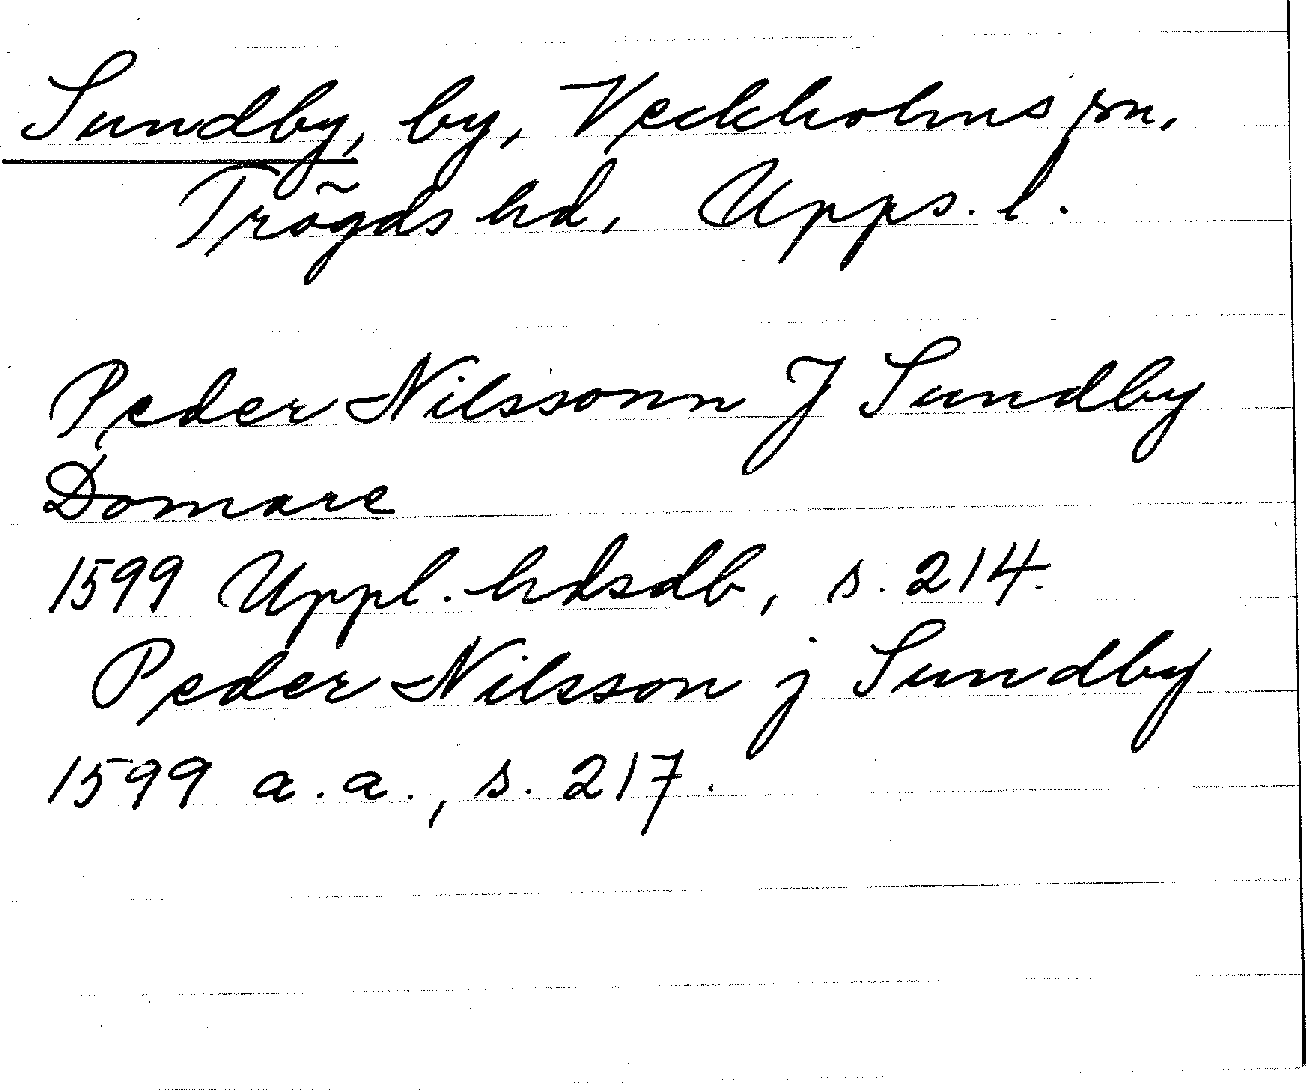 Sundby, by, Veckholms sn,
Trögds hd, Upps. l.
Peder Nilssonn J Sundby
Domare
1599 Uppl. hdsdb, s. 214.
Peder Nilsson j Sundby
1599 a.a., s. 217.